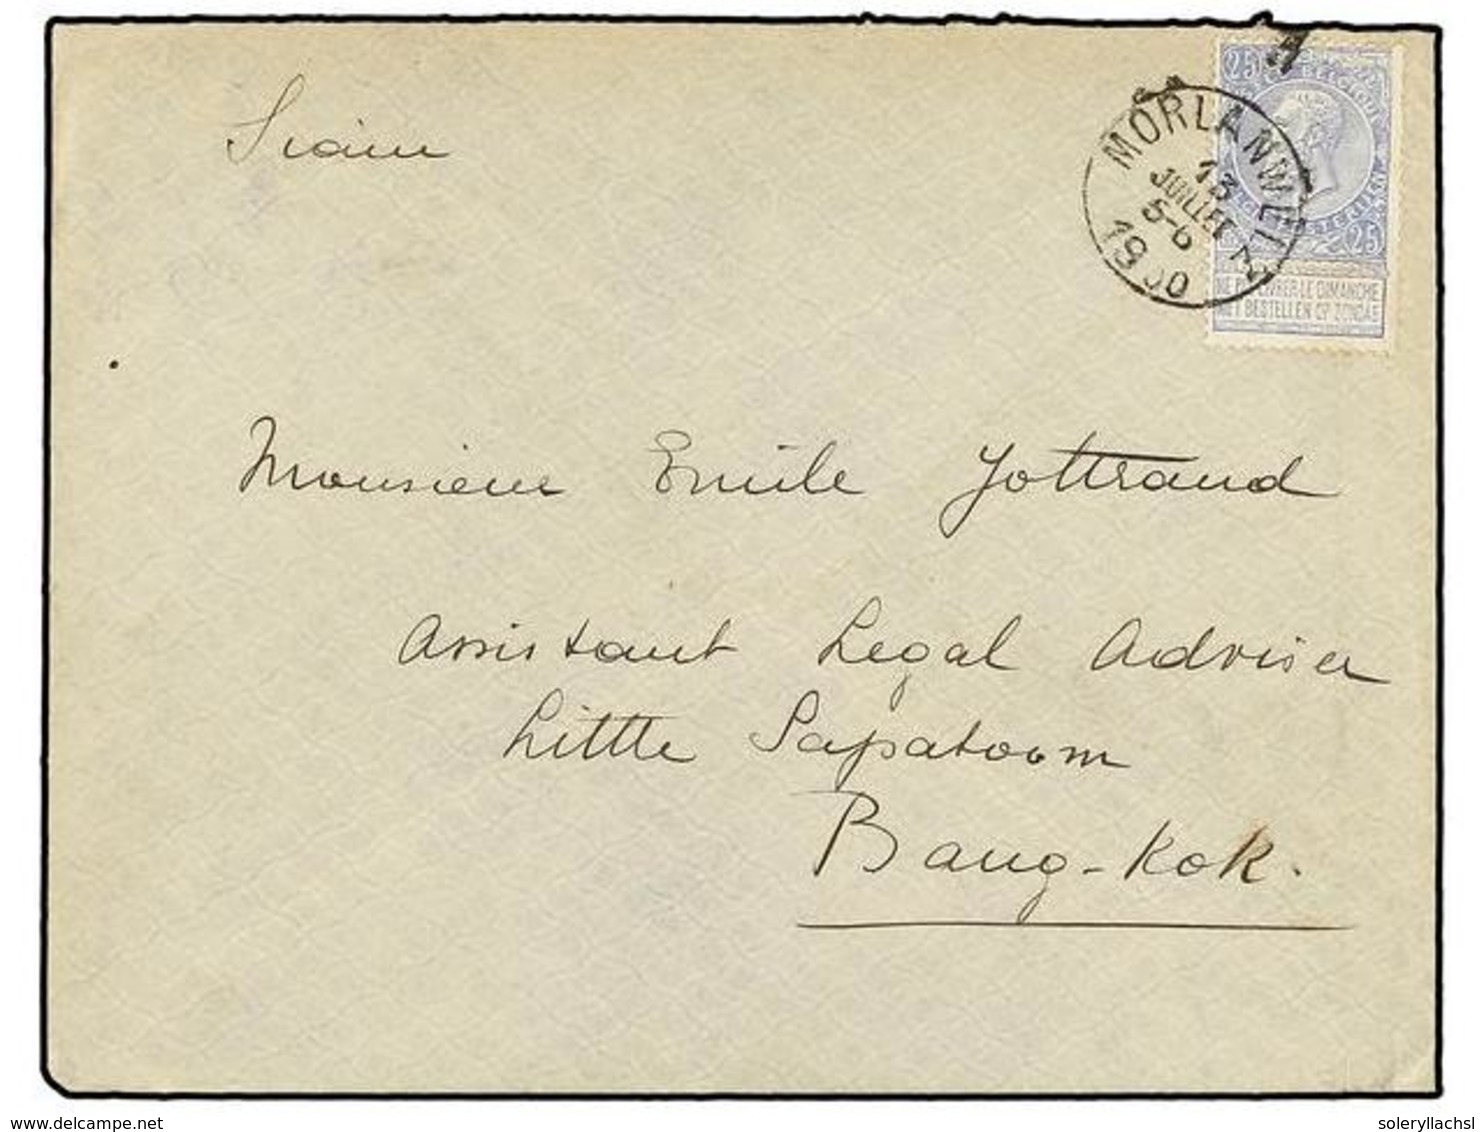 Siam
25 BELGIQUE
MORLANWELZ
13
JUILLET
5-6
1900
25
NE PAS LIVRER LE DIMANCHE
NIET BESTELLEN OP ZONDAG
Monsieur Emile Jottrand
Assistant Legal Adviser
Little Sapatoom
Bang-Kok.
soleryllachsl